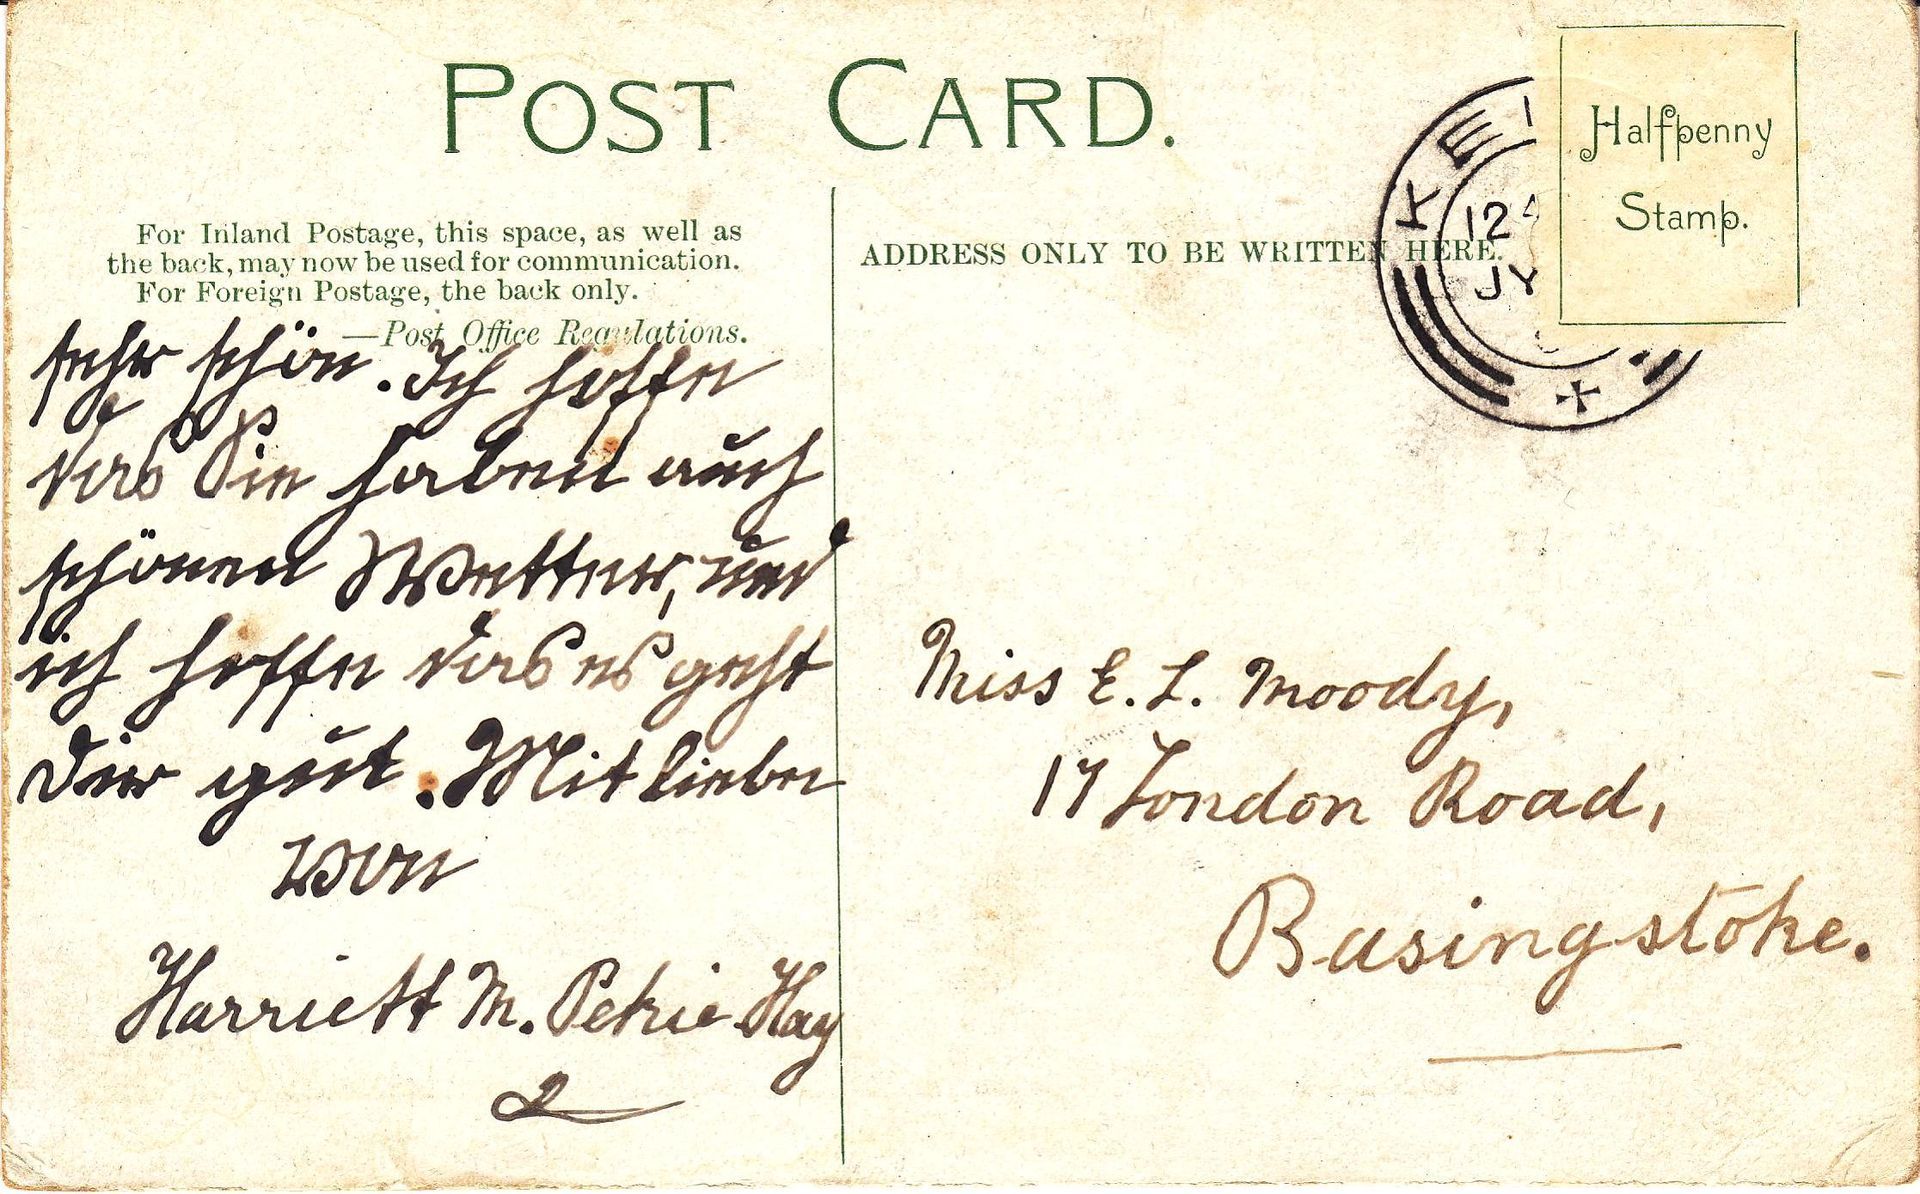 POST CARD.
For Inland Postage, this space, as well as
the back, may now be used for communication.
For Foreign Postage, the back only.
—Post Office Regulations.
sehr schön. Ich hoffe
das Sie haben auch
schönen Wetter, und
ich hoffe das es geht
Dir gut. Mit liebe
von
Harriett M. Petrie Hay
ADDRESS ONLY TO BE WRITTEN HERE.
KE
12
JY
Halfpenny
Stamp.
Miss E. L. Moody,
17 London Road,
Basingstoke.